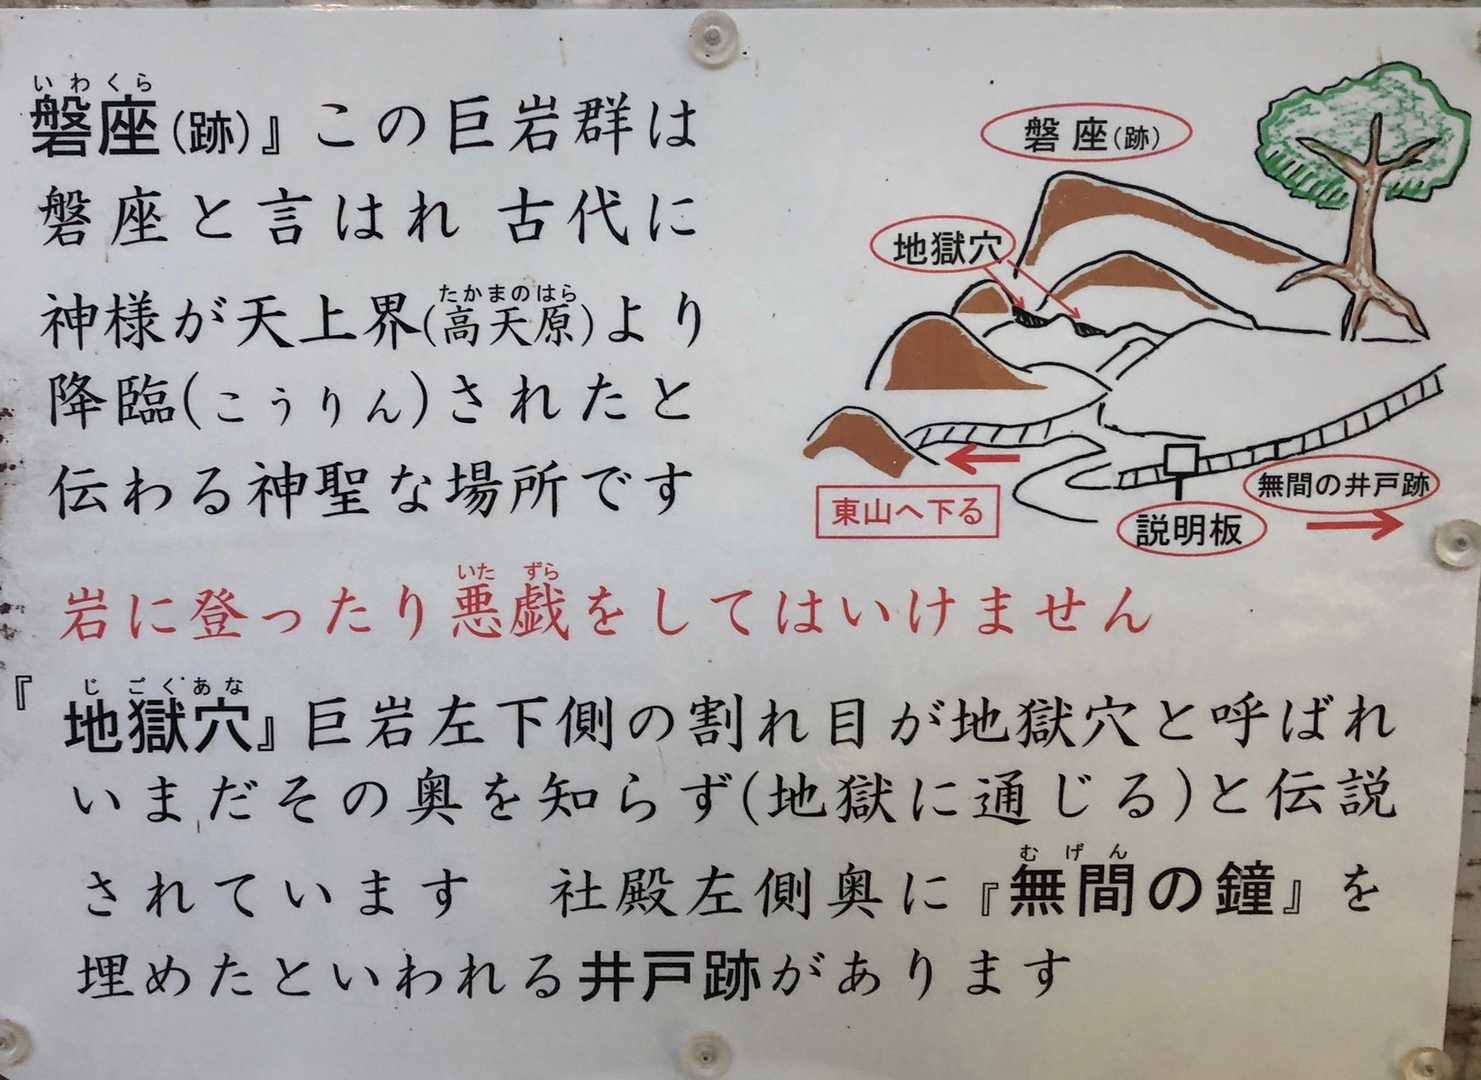 いわくら
磐座(跡)』この巨岩群は
磐座と言はれ 古代に
たかまのはら
神様が天上界(高天原)より
降臨(こうりん)されたと
伝わる神聖な場所です
磐座(跡)
地獄穴
東山へ下る
説明板
無間の井戸跡
いた ずら
岩に登ったり悪戯をしてはいけません
じごくあな
『地獄穴』巨岩左下側の割れ目が地獄穴と呼ばれ
いまだその奥を知らず(地獄に通じる)と伝説
むげん
されています 社殿左側奥に『無間の鐘』を
埋めたといわれる井戸跡があります